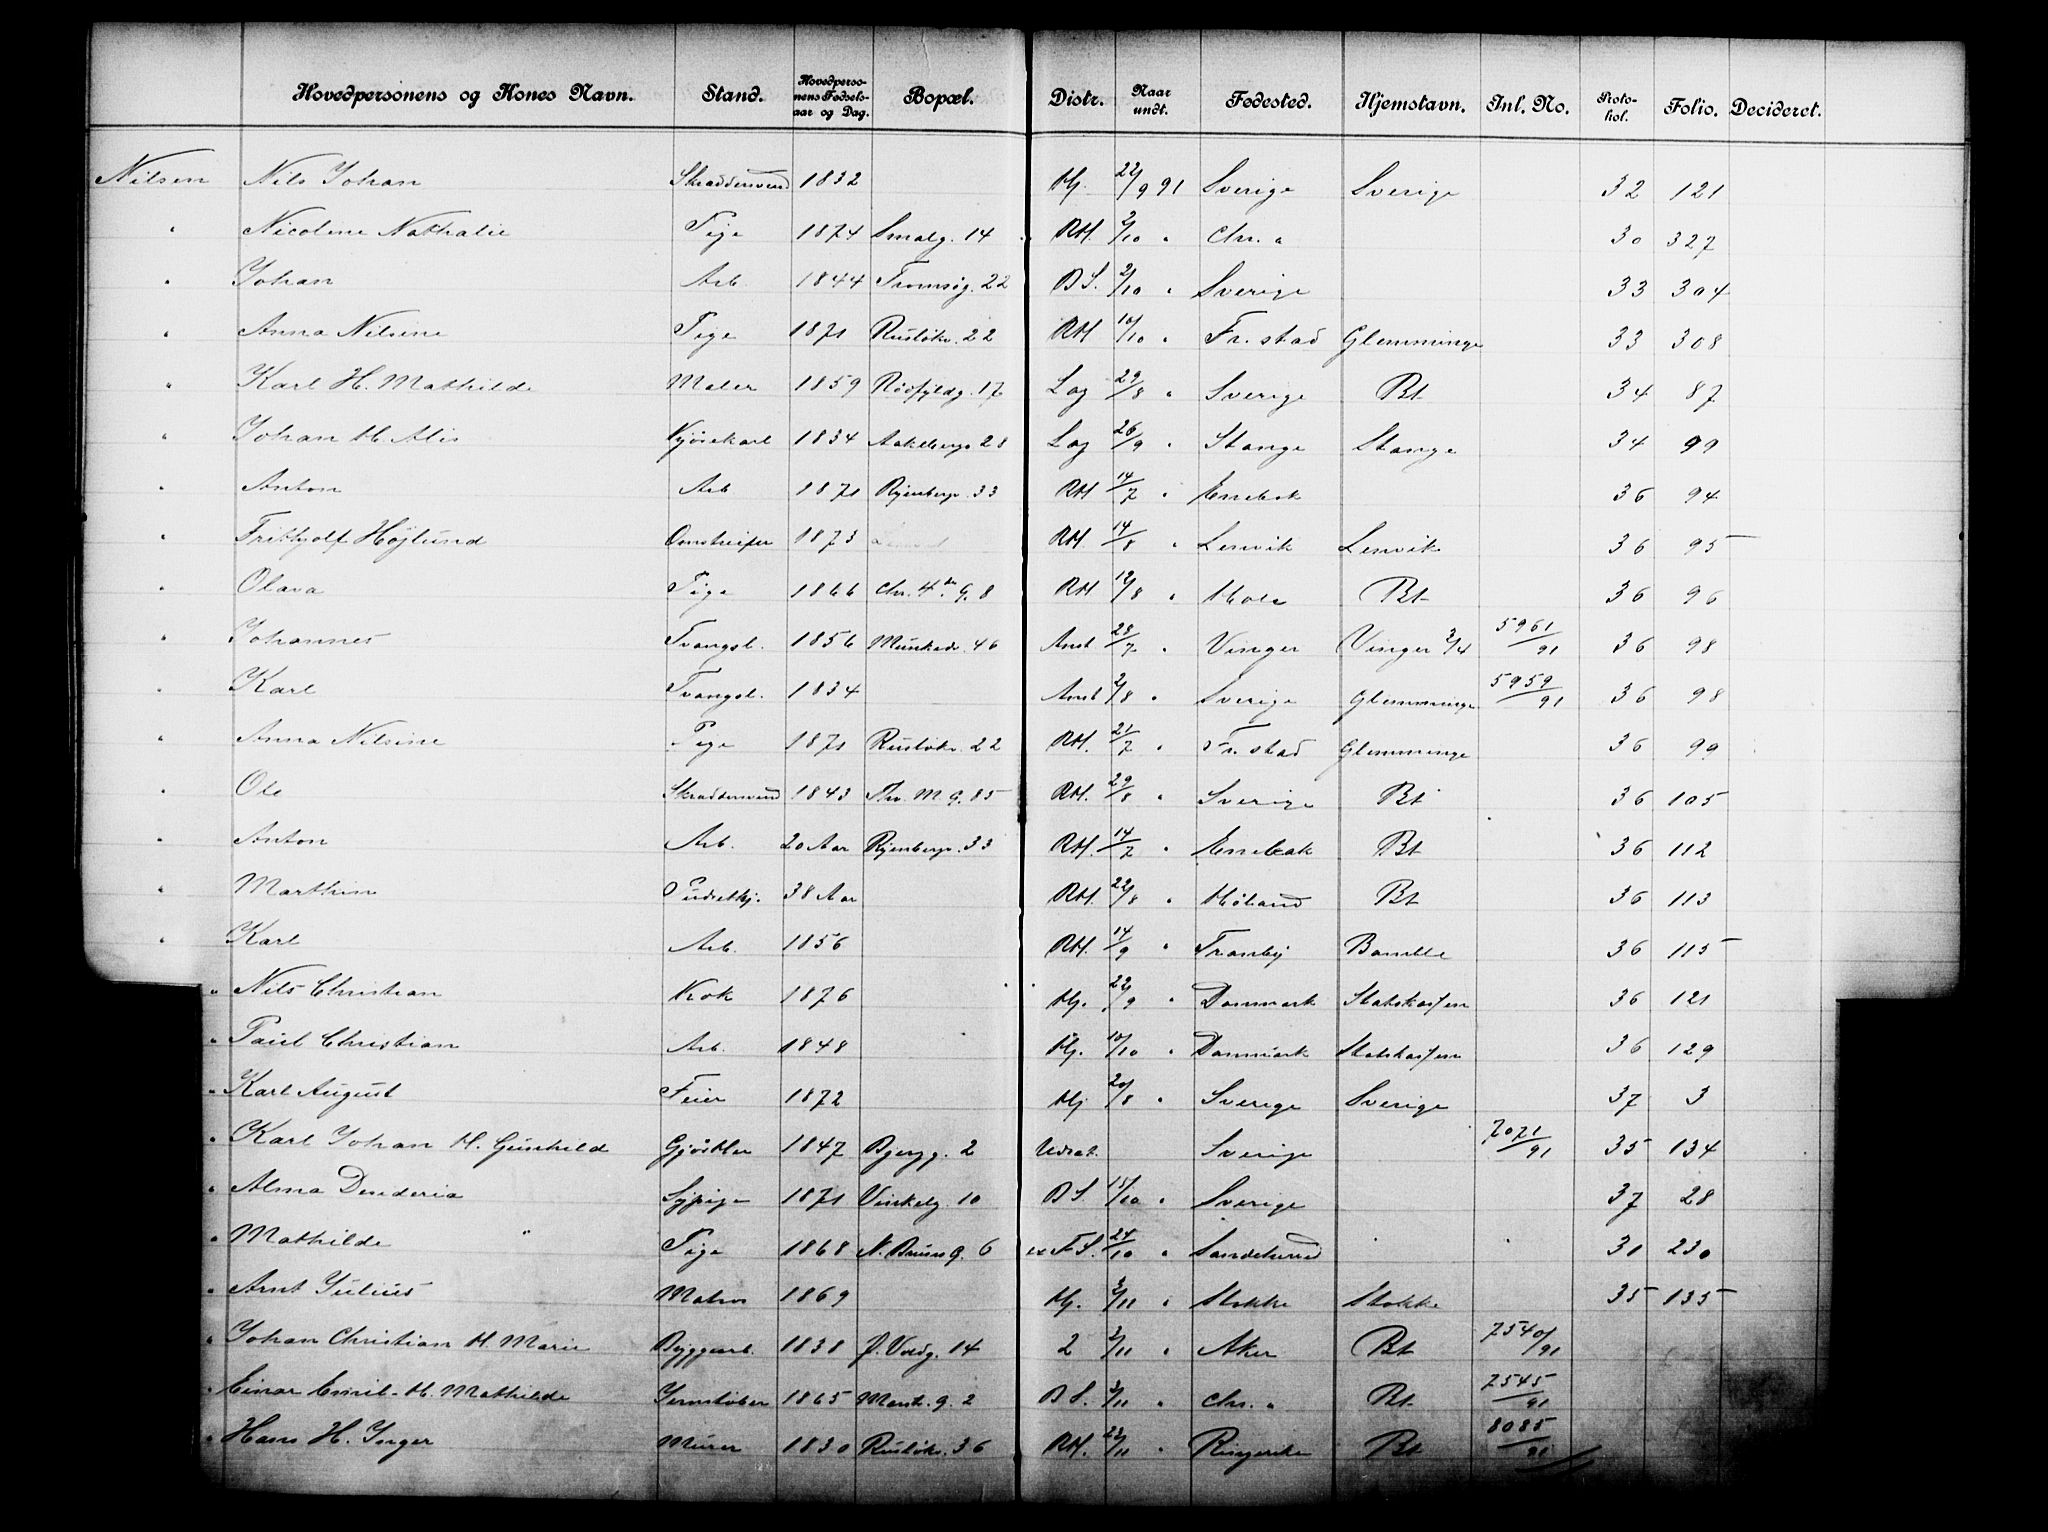 Hovedpersonens og Kones Navn. Stand. Hovedperso-nens Fødsels-aar og Dag. Bopæl. Distr. Naar undt. Fødested. Hjemstavn. Inl. No. Proto-kol. Folio. Decideret.
Nilsen Nils Johan Skræddersvend 1832 Hj. 22/9 91 Sverige Sverige 32 121
" Nicoline Nathalie Pige 1874 Smalg. 14 RH. 2/10 " Chr. a 30 327
" Johan Arb. 1844 Tromsøg. 22 BS. 2/10 " Sverige 33 304
" Anna Nilsine Pige 1871 Rusløkv. 22 RH 10/10 " Fr. stad Glemminge 33 308
" Karl H. Mathilde Maler 1859 Rødfyldg. 17 Lag 29/8 " Sverige Bt 34 87
" Johan H. Alis Kjørekarl 1834 Aakebergv 28 Lag 26/9 " Stange Stange 34 99
" Anton Arb 1871 Ryenbergv. 33 RH 14/7 " Enebak 36 94
" Frithjolf Højlund Omstreifer 1873 RH. 14/8 " Lenvik Lenvik 36 95
" Olava Pige 1866 Chr. 4de G. 8 RH 12/8 " Hole Bt 36 96
" Johannes Tvangsl. 1856 Munkedv. 46 Anst 28/7 " Vinger Vinger 3/4 5961/91 36 98
" Karl Tvangsl. 1834 Anst 2/8 " Sverige Glemminge 5959/91 36 98
" Anna Nilsine Pige 1871 Rusløkv. 22 RH. 21/7 " Fr. stad Glemminge 36 99
" Ole Skræddersvend 1843 Thv. M. G. 85 RH. 29/8 " Sverige Bt 36 105
" Anton Arb. 20 Aar Ryenbergv. 33 RH. 14/7 " Enebak Bt 36 112
" Marthin 38 Aar RH. 22/8 " Høland Bt 36 113
" Karl Arb. 1856 RH. 14/9 " Tranby Bamble 36 115
" Nils Christian Kok 1876 Hj. 22/9 " Danmark Statskassen 36 121
" Paul Christian Arb. 1848 Hj. 10/10 " Danmark Statskassen 36 129
" Karl August Feier 1872 Hj 20/8 " Sverige Sverige 37 3
" Karl Johan H. Gunhild Gjørtler 1847 Bjergg. 2 Udsat Sverige 7071/91 35 134
" Alma Denderia Sypige 1871 Vinkelg. 10 BS. 15/10 " Sverige 37 28
" Mathilde " Pige 1868 N. Bruns G. 6 FS. 24/10 " Sandeherred 31 230
" Arnt Julius Matros 1869 Hj. 3/11 " Stokke Stokke 35 135
" Johan Christian H. Marie Byggearb. 1838 P. Voldg. 14 2 3/11 " Aker Bt 7540/91
" Einar Emil H. Mathilde Jernstøber 1865 Mark. G. 2 BS. 3/11 " Chr. a Bt 7545/91
" Hans H. Inger Murer 1830 Rusløkv. 36 RH. 23/11 " Ringerike Bt 8085/91